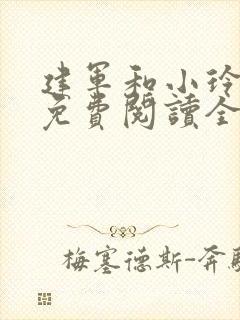 建军和小玲
免費閱讀全
梅塞德斯-奔